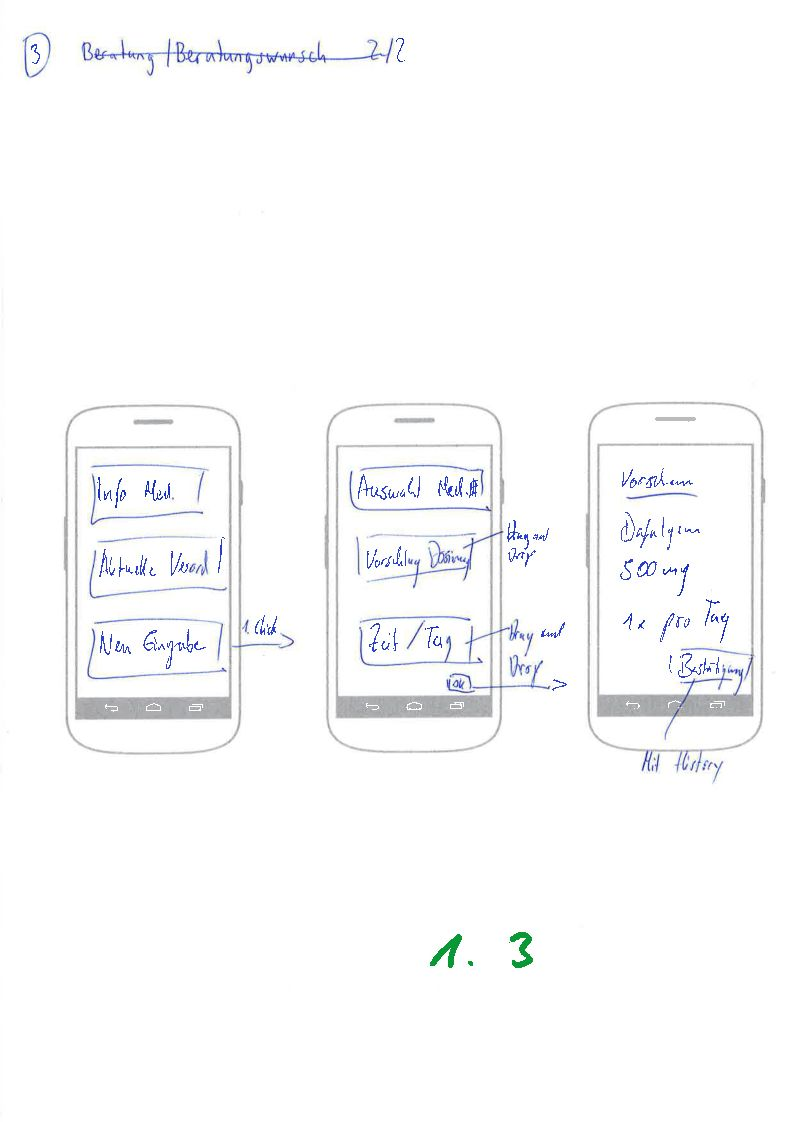 3 Beratung/Beratungswunsch 2/2
Info Med.
Aktuelle Verord
Neu Eingabe
1. Click
Auswahl Med.
Vorschlag Dossierung
Drag and
Drop
Zeit/Tag
Drag and
Drop
OK
Dafalgan
500 mg
1x pro Tag
Bestätigung
Mit History
1. 3